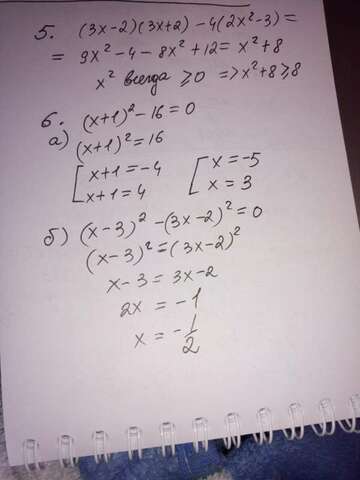 5. (3x-2)(3x+2)-4(2x²-3)=
= 9x²-4-8x²+12= x²+8
x² всегда ≥0 => x²+8≥8
6.
а) (x+1)²-16=0
(x+1)²=16
[x+1=-4 [x=-5
x+1=4 x=3
б) (x-3)²-(3x-2)²=0
(x-3)²=(3x-2)²
x-3=3x-2
2x=-1
x=-1/2